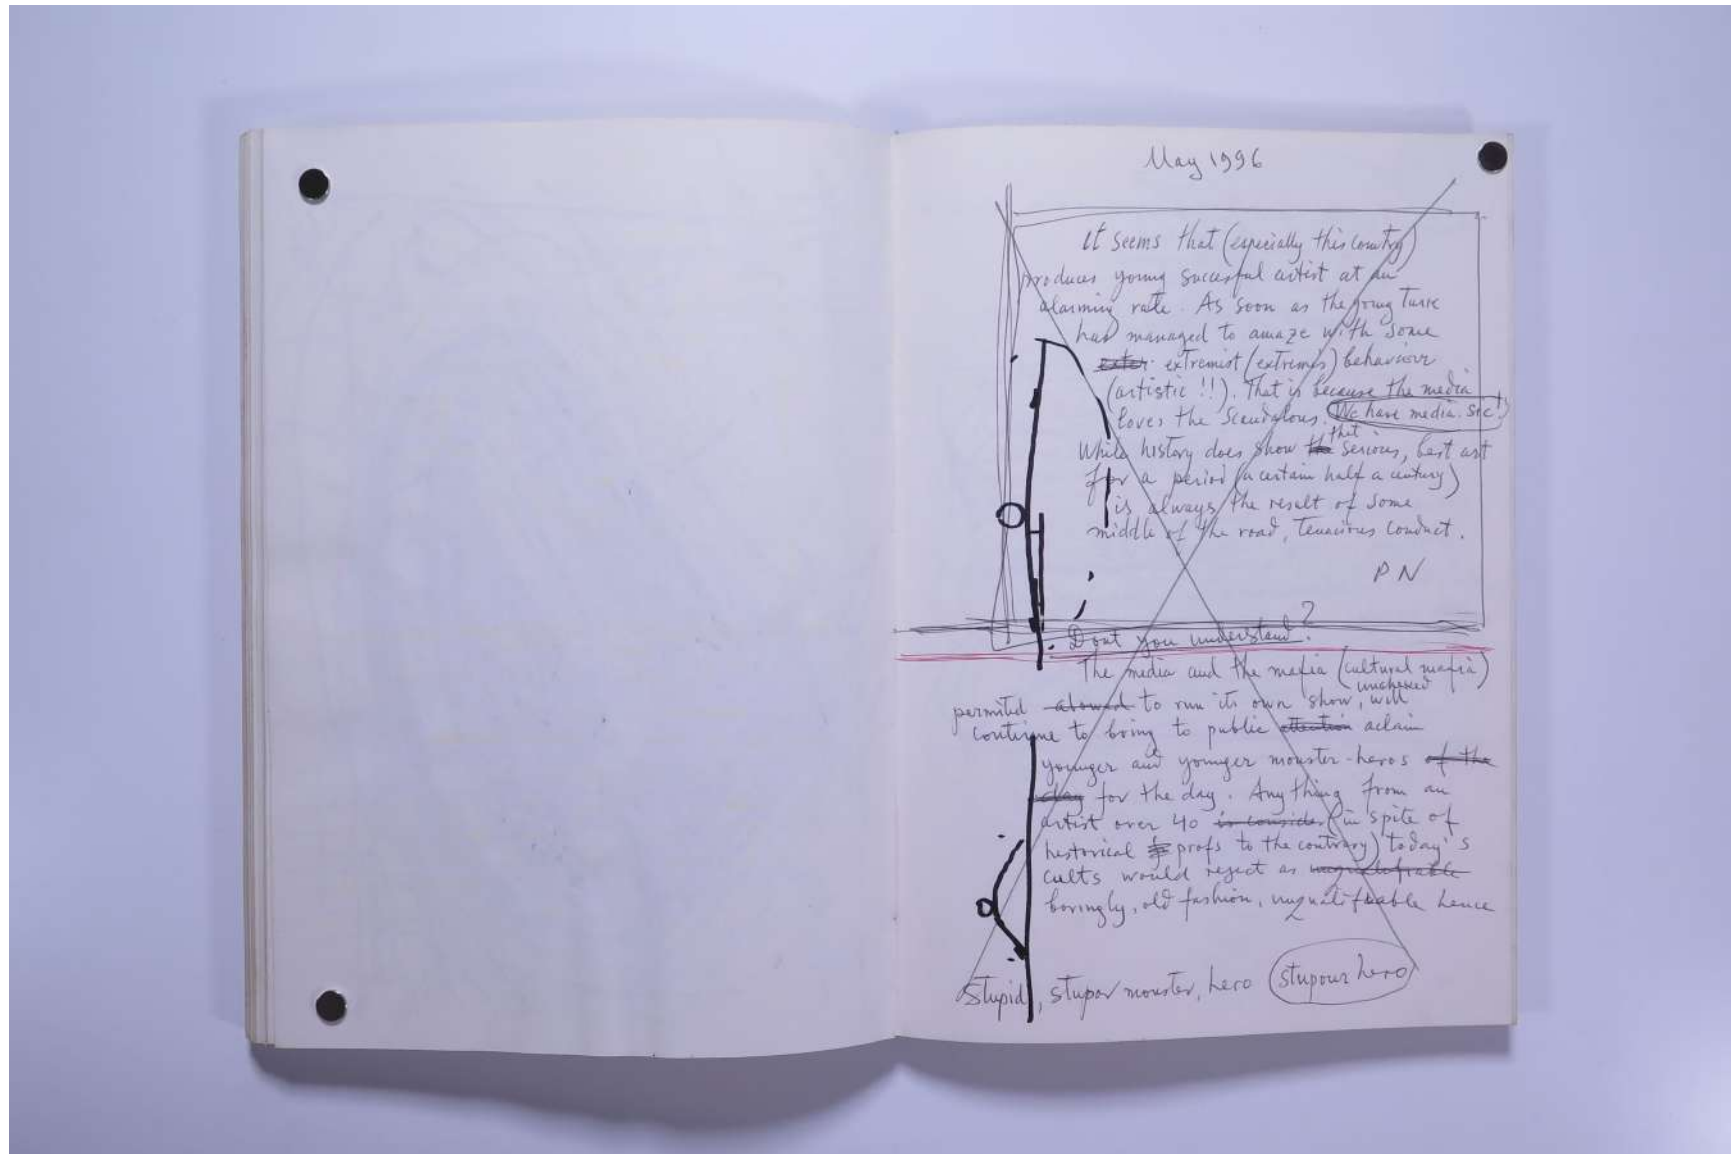 May 1996
It seems that (especially this country)
produces young succesful artist at an
alarming rate. As soon as the young Turk
has managed to amaze with some
extremist (extremes) behaviour
(artistic !!). That is because the media
loves the scandalous. We have media. sic!
that
While history does show serious, best art
for a period (a certain half a century)
is always the result of some
middle of the road, tenacious conduct.
PN
Dont you understand?
The media and the mafia (cultural mafia)
permited alowed to run its own show, will
continue to bring to public attention aclaim
younger and younger monster-heros of the
day for the day. Anything from an
artist over 40 is consider (in spite of
historical profs to the contrary) today's
cults would reject as
boringly, old fashion, unqualifiable hence
stupid, stupor monster, hero stupour hero